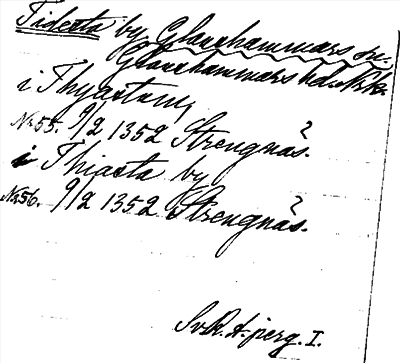 Tidesta by Glanshammars sn.
Glanshammars hd. Nrke.
i Thyæstum,
Nr 55. 9/2 1352 Strengnäs.?
i Thiæsta by
Nr 56. 9/2 1352 Strengnäs.?
Sv. R. A. perg. I.